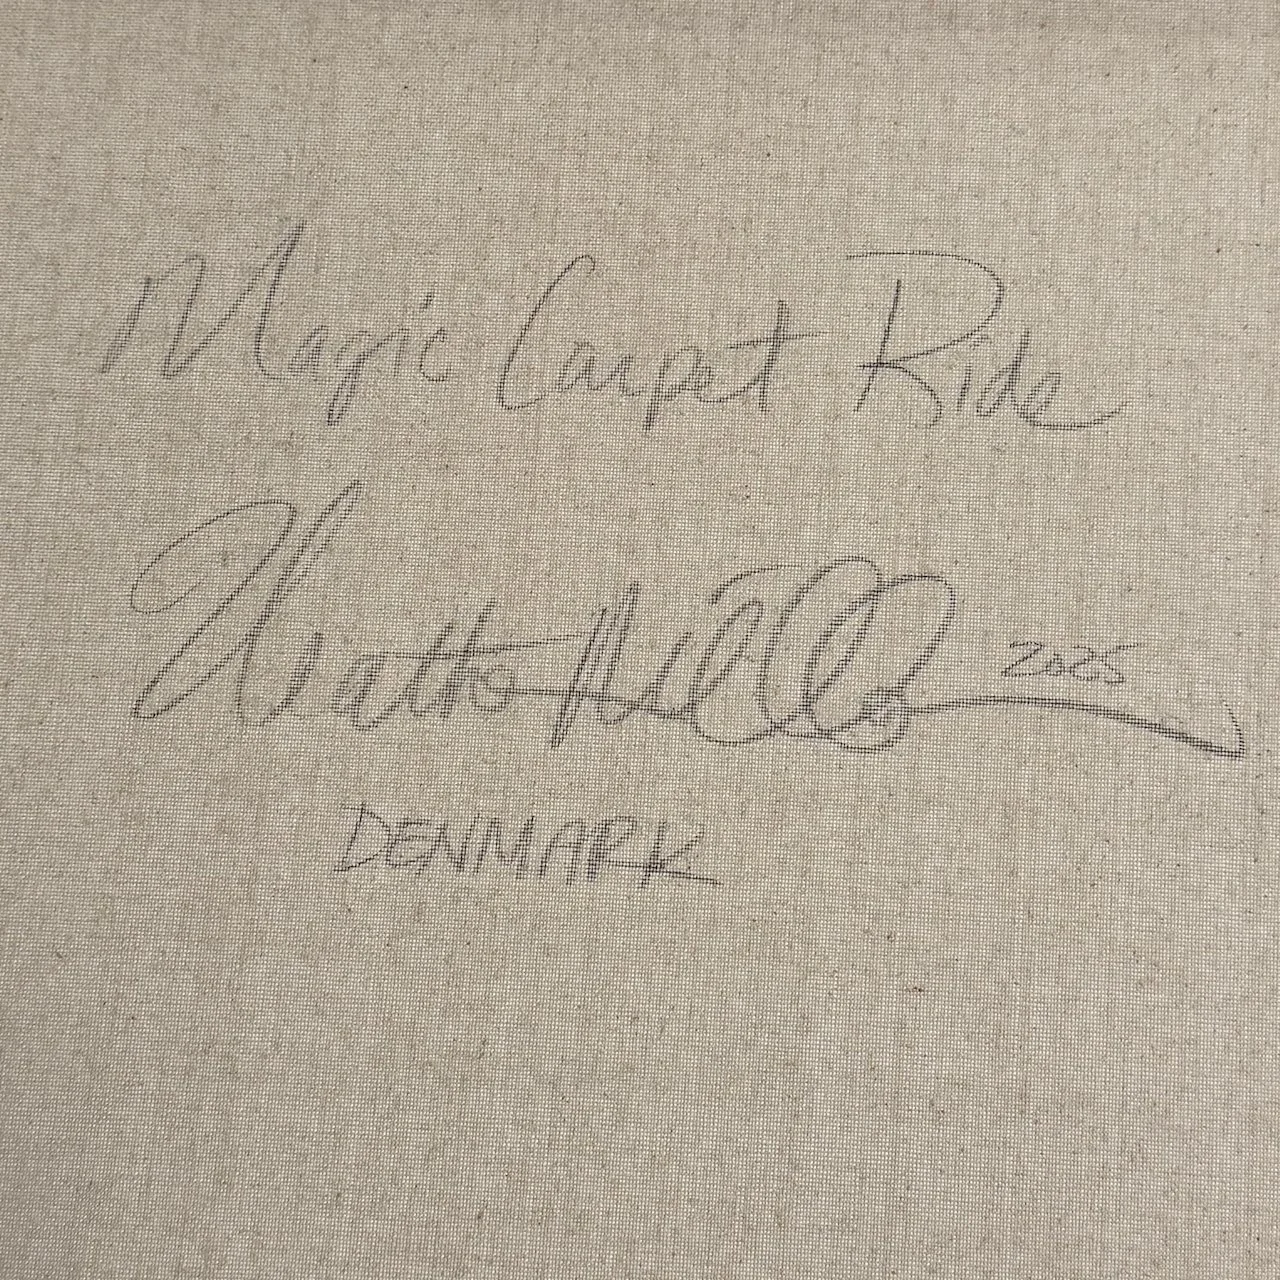 Magic Carpet Ride
2025
DENMARK